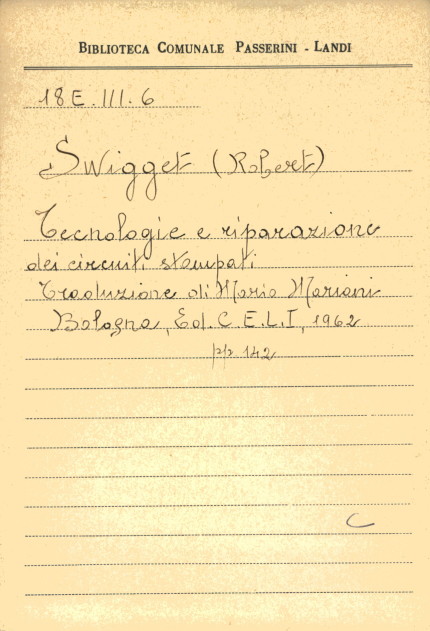 BIBLIOTECA COMUNALE PASSERINI - LANDI
18 E. III. 6
Swigget (Robert)
Tecnologie e riparazione
dei circuiti stampati
Traduzione di Mario Mariani
Bologna, Ed. C.E.L.I, 1962
pp. 142
C